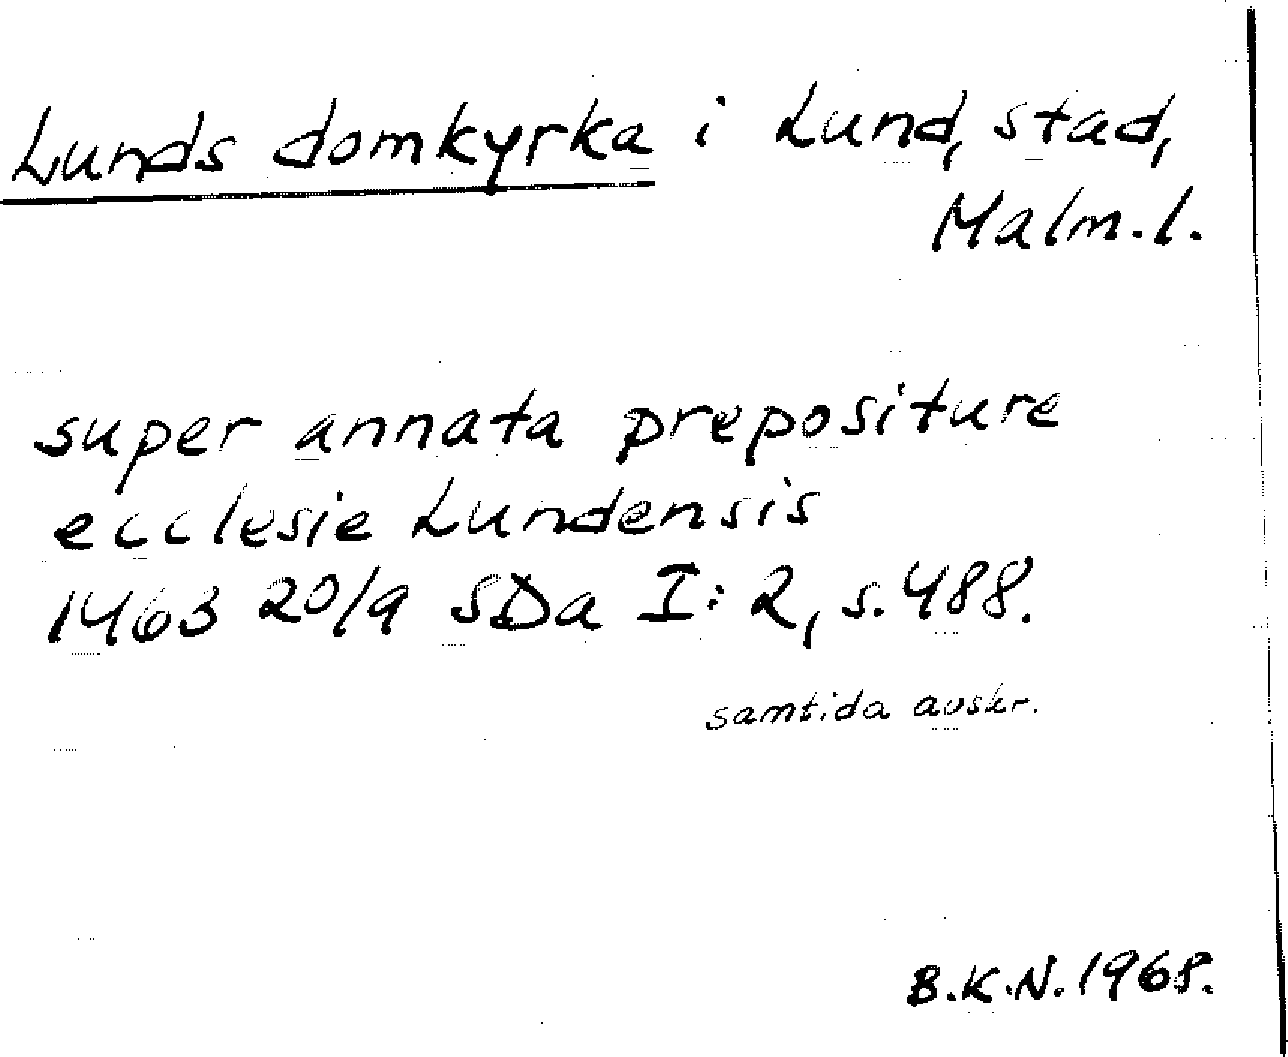 Lunds domkyrka i Lund, stad,
Malm.l.
super annata prepositure
ecclesie Lundensis
1463 20/9 SDa I:2, s.488.
samtida avskr.
B.K.N. 1968.